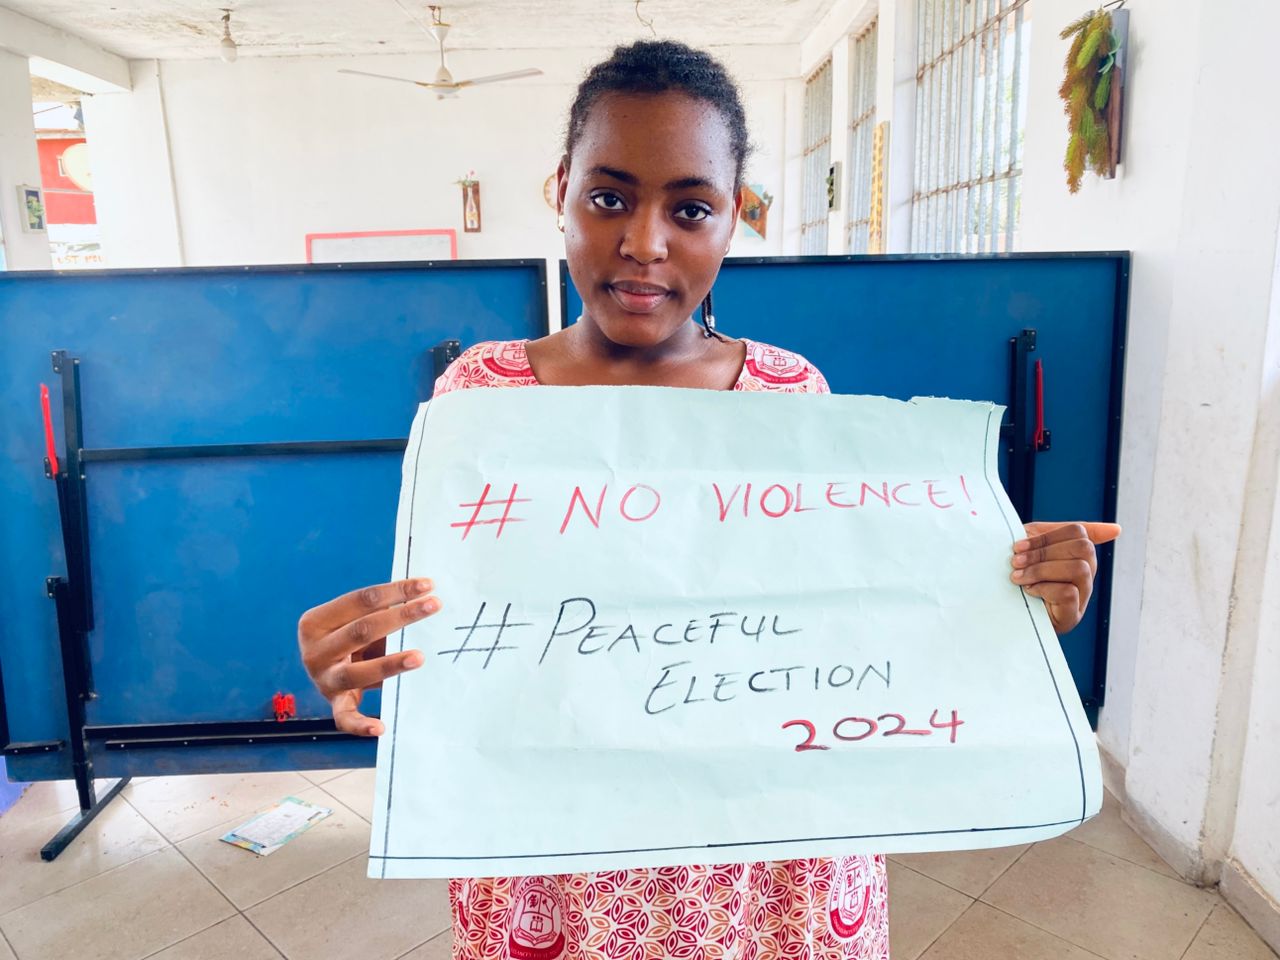 # NO VIOLENCE!
# PEACEFUL
ELECTION
2024